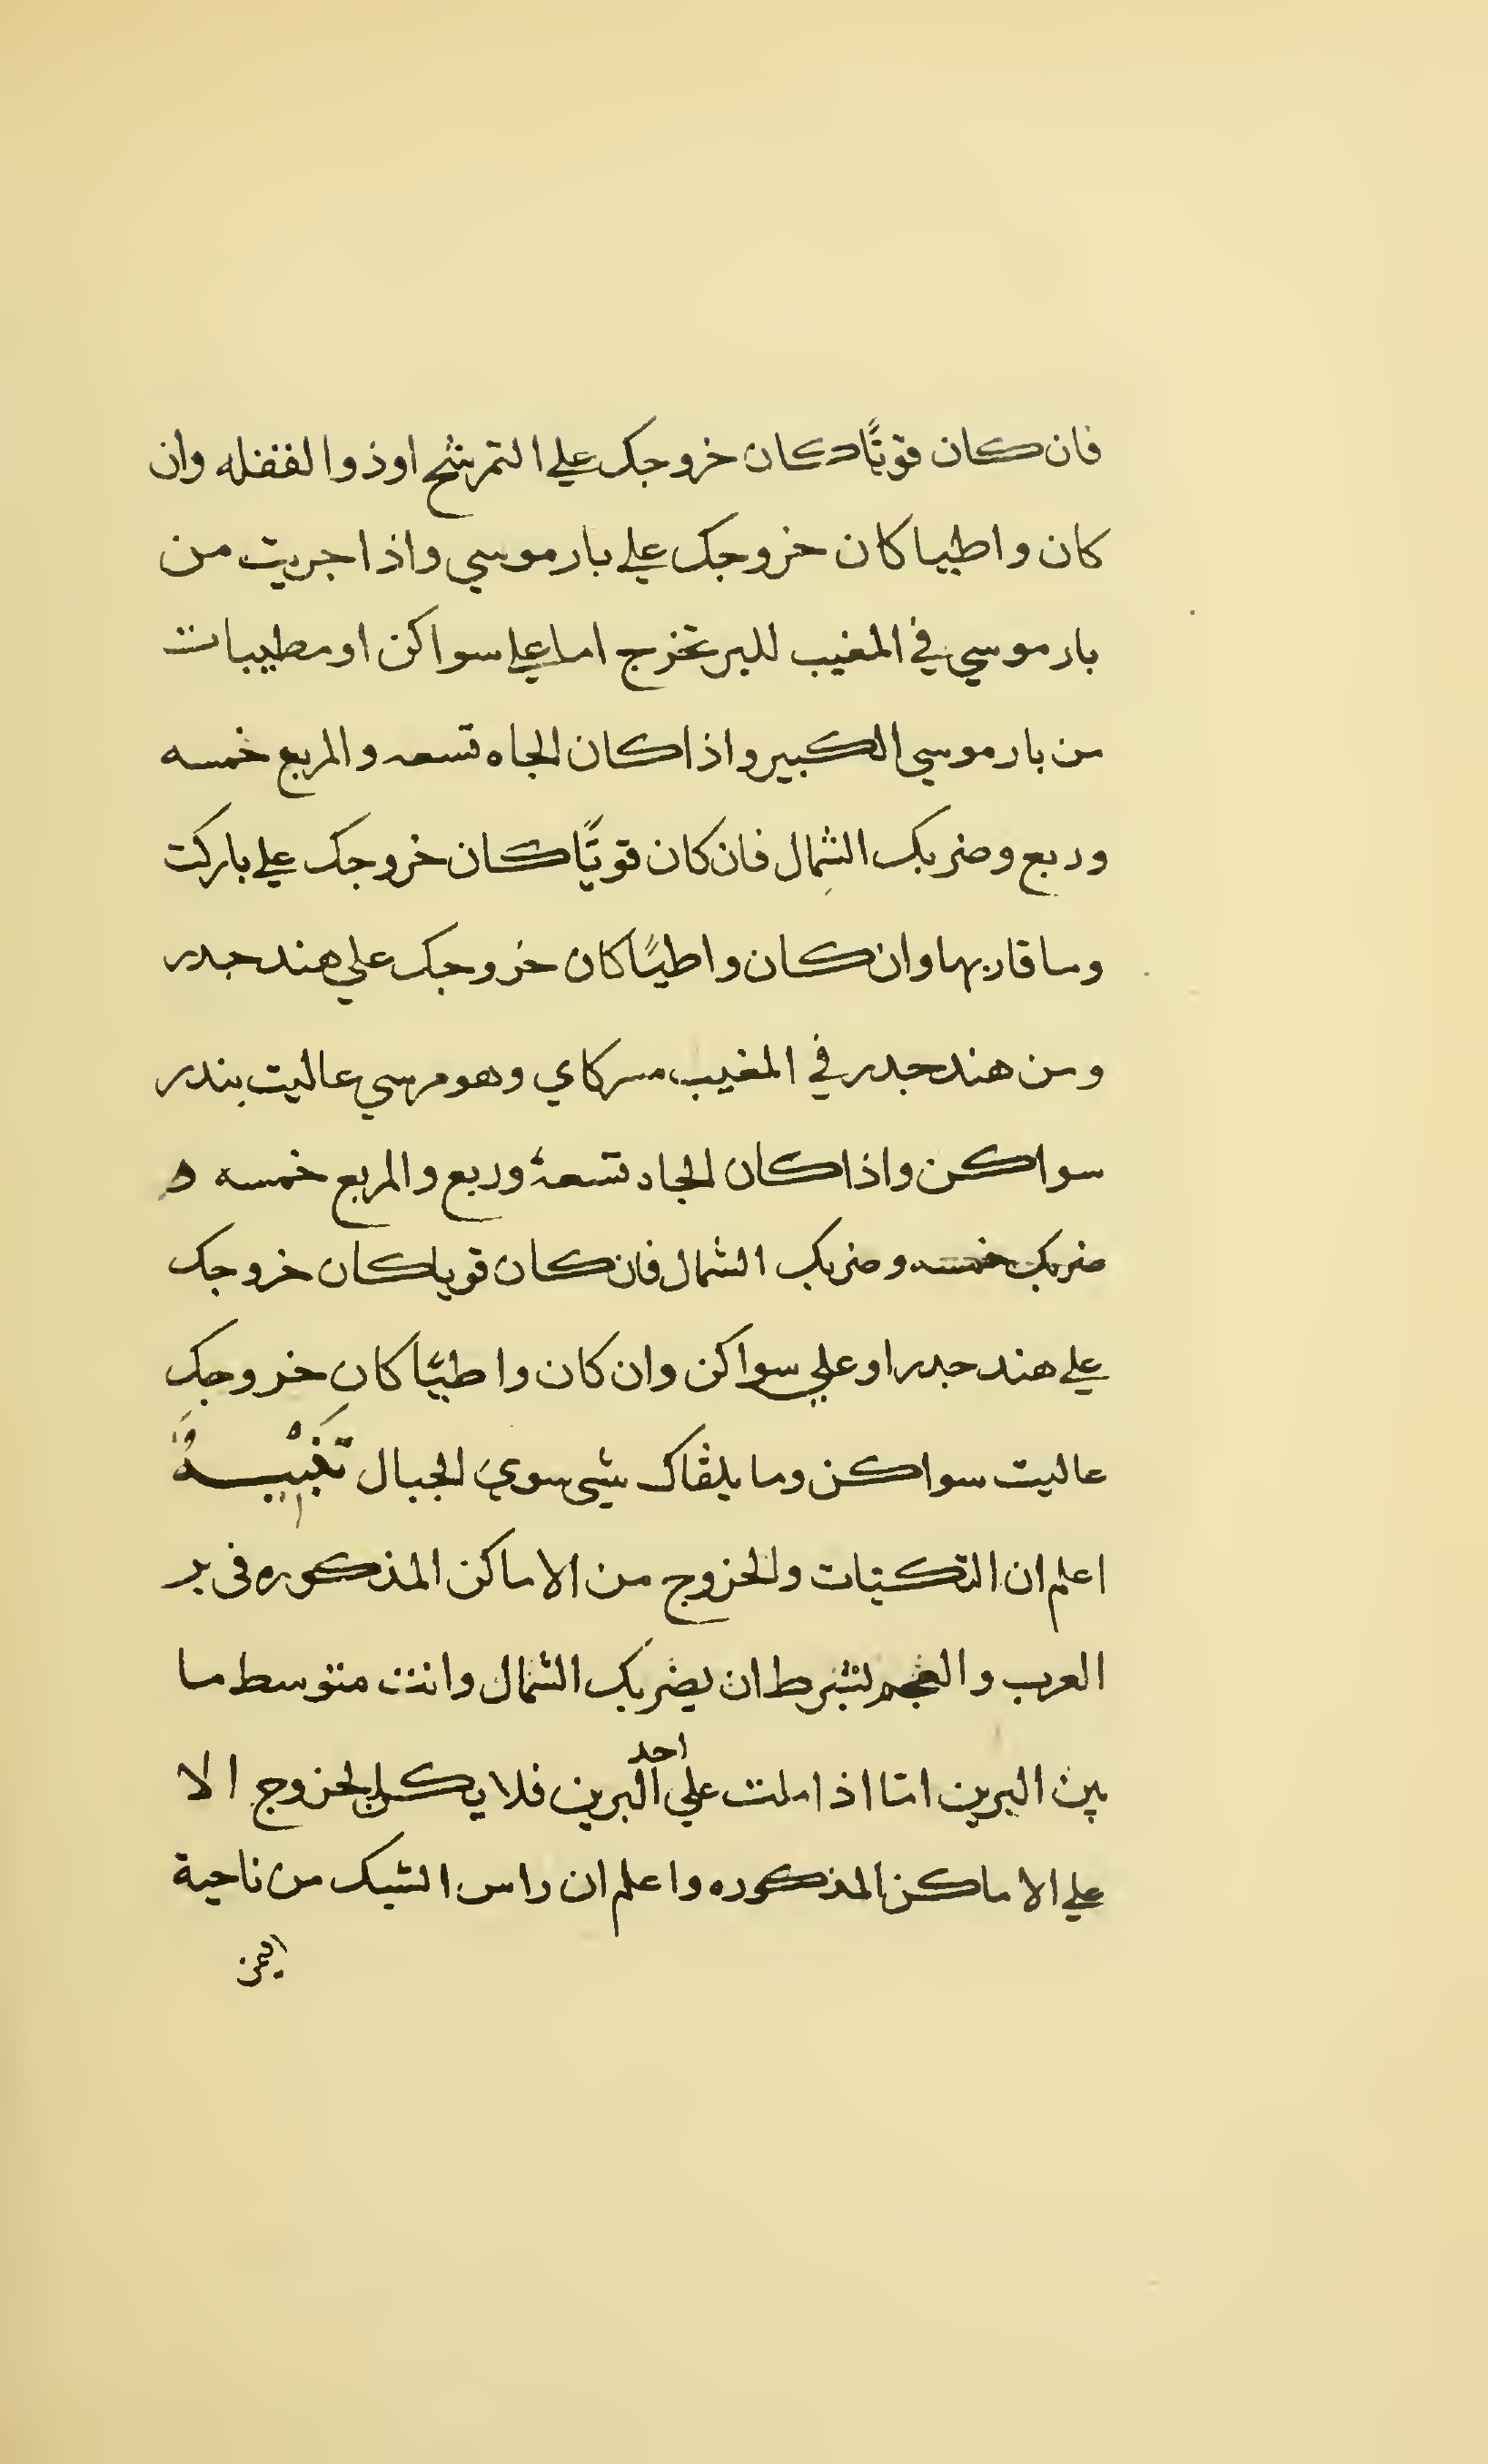 فان كان قويًّا دكان خروجك علي التمرشح او ذوا لففله وان
كان واطيا كان خروجك علي بار موسي واذا جريت من
بار موسي في المغيب للبر تخرج اما علي سواكن او مطيبات
من بار موسي الكبير واذا كان الجاه تسعه والمربع خمسه
وربع وضربك الشمال فان كان قويًّا كان خروجك علي باركت
وما قاربها وان كان واطيًا كان خروجك علي هند جدر
ومن هند جدر في المغيب مسركاي وهو مرسي عاليت بندر
سواكن واذا كان الجاه تسعة وربع والمربع خمسه
ضربك خمسه وضربك الشمال فان كان قويا كان خروجك
علي هند جدر او علي سواكن وان كان واطيًّا كان خروجك
عاليت سواكن وما يلقاك شي سوي الجبال تَنْبِيهٌ
اعلم ان التكيات والخروج من الاماكن المذكوره في بر
العرب والعجم لشرط ان يضربك الشمال وانت متوسط ما
بين البرين امّا اذا ملت علي احد البرين فلا يكل الخروج الا
علي الاماكن المذكوره واعلم ان راس الشبك من ناحية
اليمن